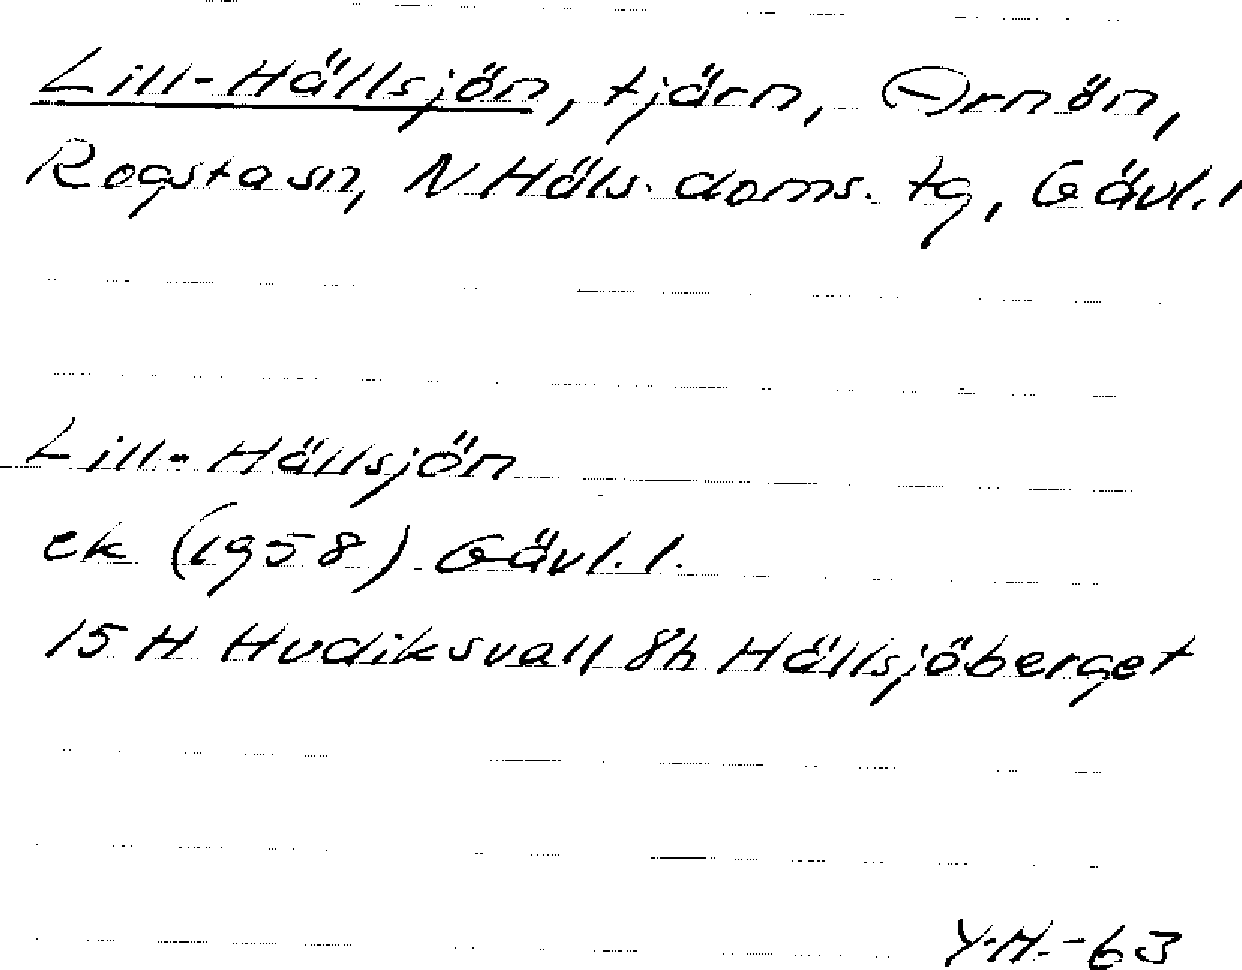 Lill-Hällsjön, tjärn, Arnön,
Rogsta sn, N Häls. doms. tg, Gävl. l
Lill-Hällsjön
ek (1958) Gävl. l.
15 H Hudiksvall 8h Hällsjöberget
Y.H.-63